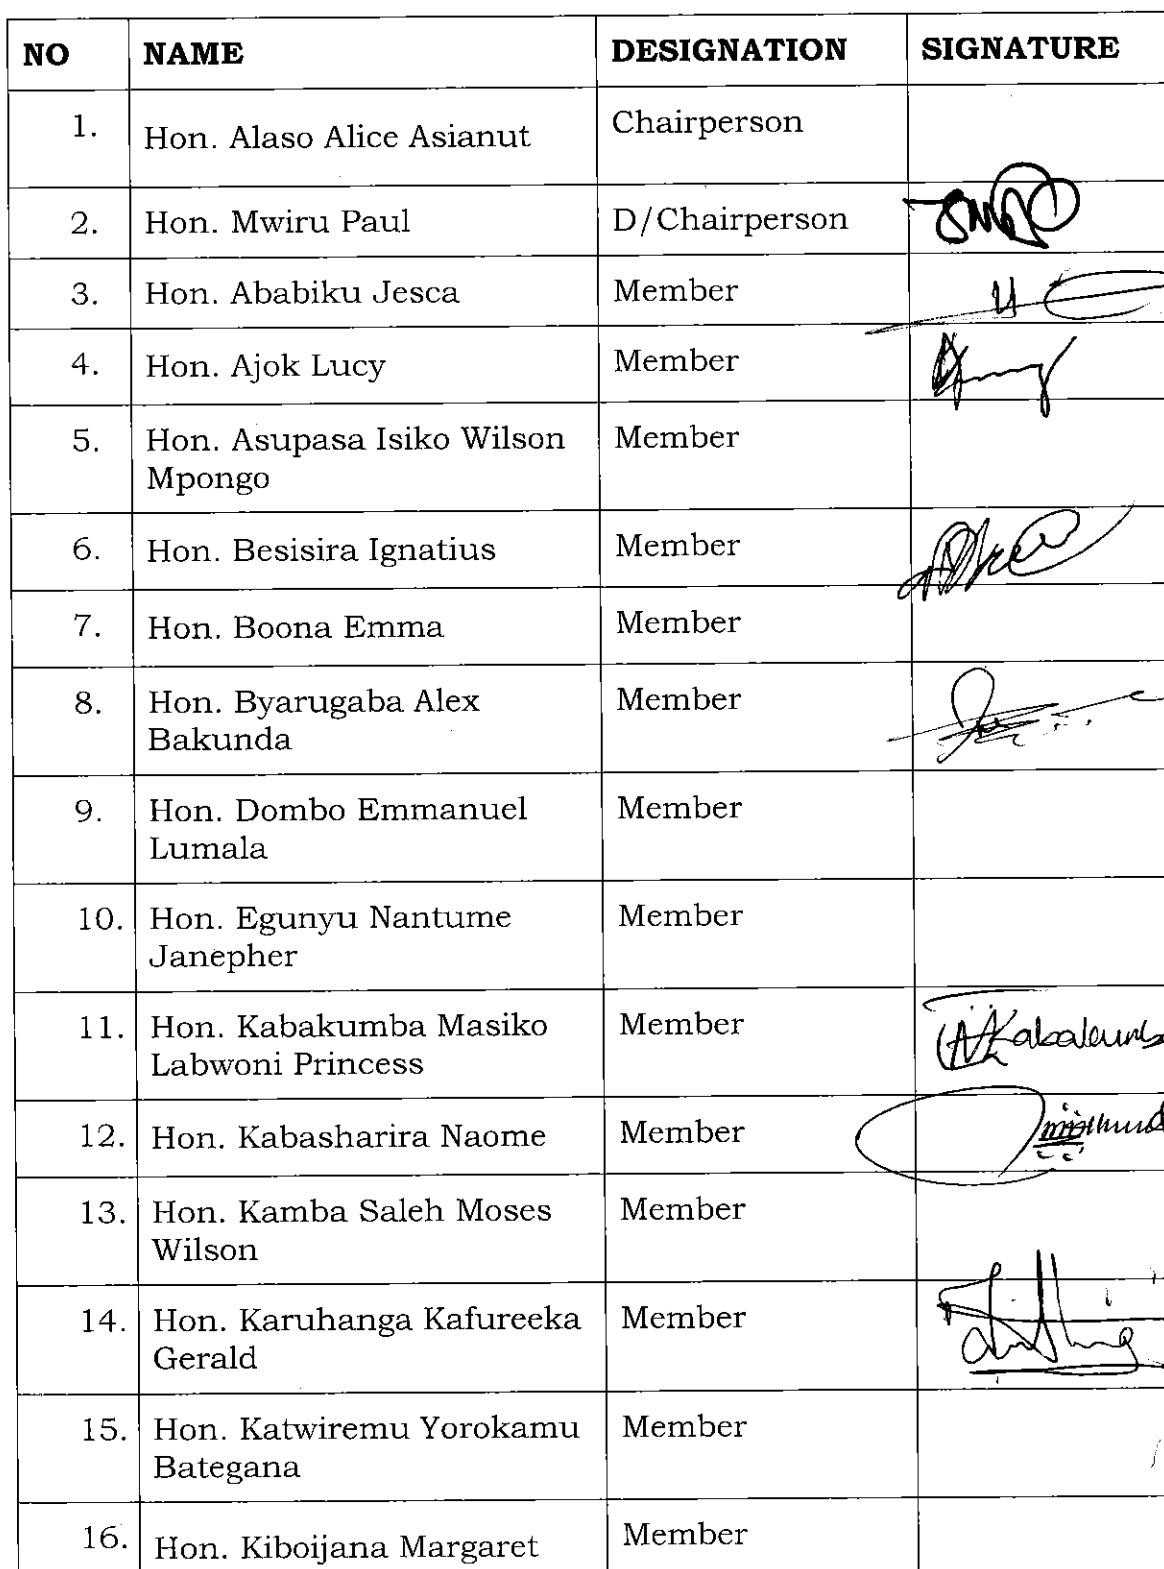 NO NAME DESIGNATION SIGNATURE
1. Hon. Alaso Alice Asianut Chairperson
2. Hon. Mwiru Paul D/Chairperson
3. Hon. Ababiku Jesca Member
4. Hon. Ajok Lucy Member
5. Hon. Asupasa Isiko Wilson Member
Mpongo
6. Hon. Besisira Ignatius Member
7. Hon. Boona Emma Member
8. Hon. Byarugaba Alex Member
Bakunda
9. Hon. Dombo Emmanuel Member
Lumala
10. Hon. Egunyu Nantume Member
Janepher
11. Hon. Kabakumba Masiko Member
Labwoni Princess
12. Hon. Kabasharira Naome Member
13. Hon. Kamba Saleh Moses Member
Wilson
14. Hon. Karuhanga Kafureeka Member
Gerald
15. Hon. Katwiremu Yorokamu Member
Bategana
16. Hon. Kiboijana Margaret Member